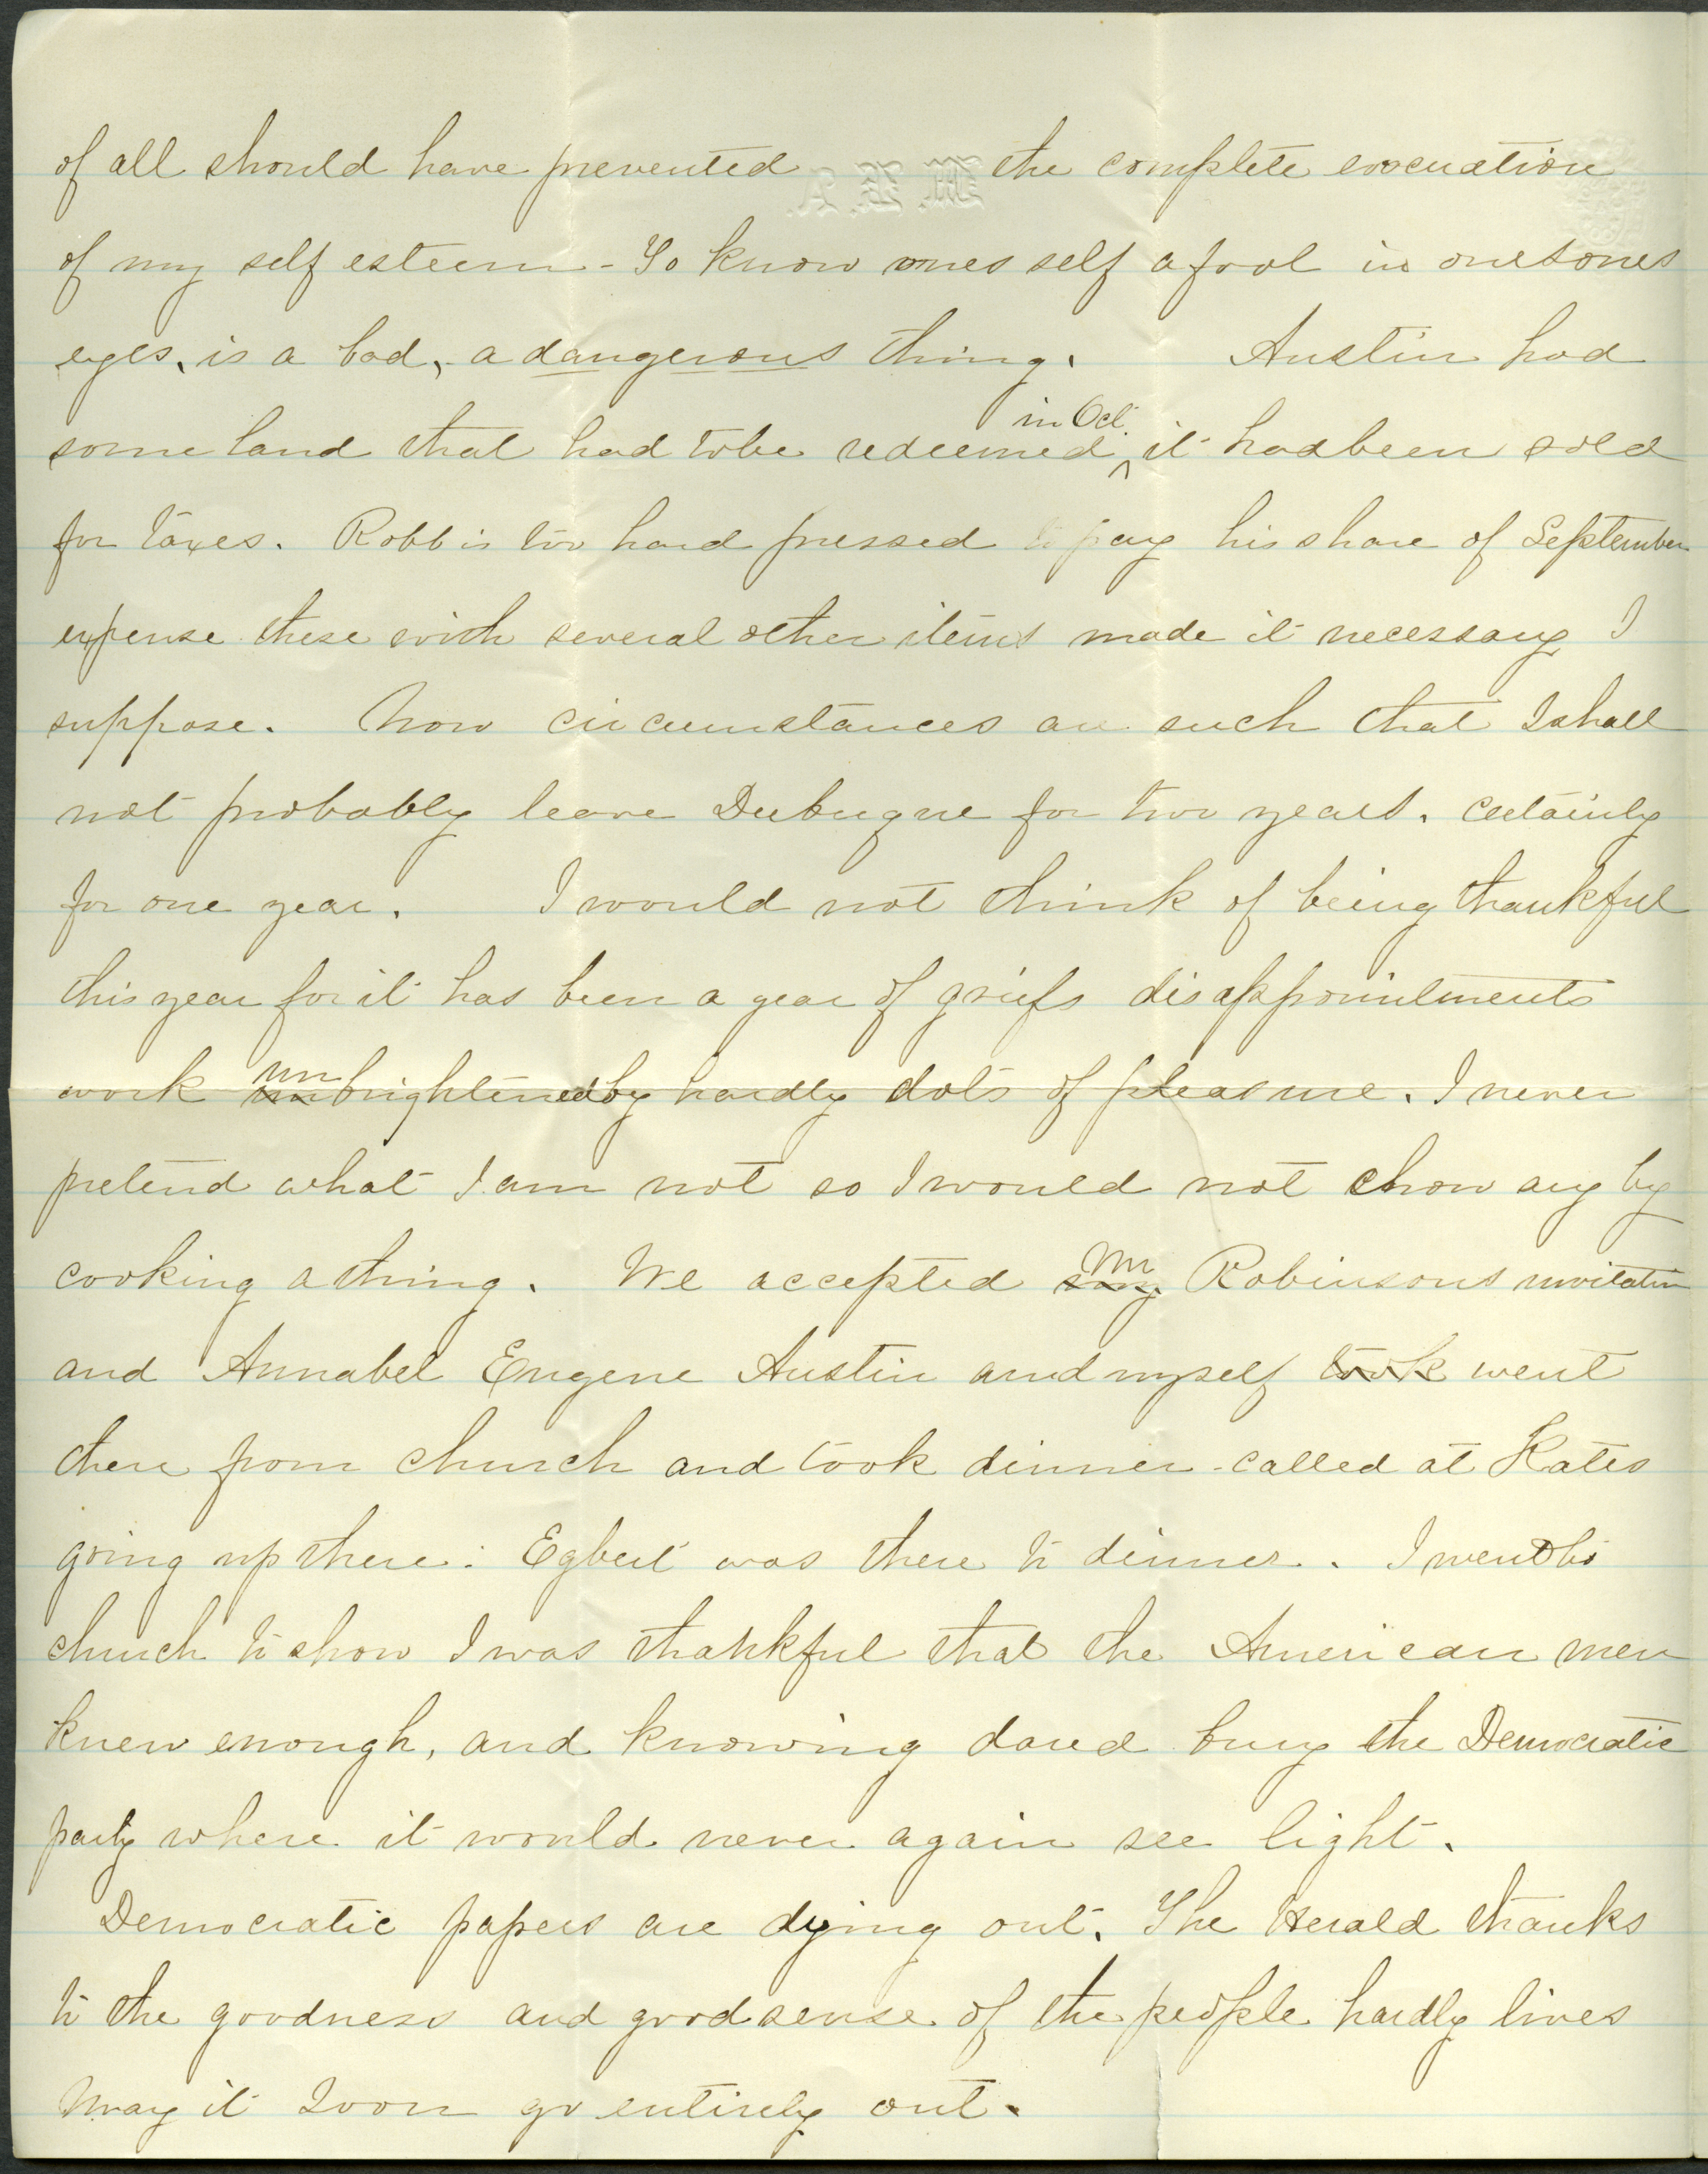 of all should have prevented the complete evacuation
of my self esteem - To know ones self a fool in onesones
eyes, is a bad, - a dangerous thing. Austin had
some land that had to be redeemed in Oct. it had been sold
for taxes. Robb is too hard pressed to pay his share of September
expense these with several other items made it necessary I
suppose. Now circumstances are such that I shall
not probably leave Dubuque for two years. certainly
for one year. I would not think of being thankful
this year for it has been a year of griefs disappointments
work un unbrightened by hardly dots of pleasure. I never
pretend what I am not so I would not show any by
cooking a thing. We accepted Mr Robinsons invitation
and Annabel Eugene Austin and myself took went
there from church and took dinner - called at Kates
going up there. Egbert was there to dinner. I went to
church to show I was thankful that the American men
knew enough, and knowing dared bury the Democratic
party where it would never again see light.
Democratic papers are dying out. The Herald thanks
to the goodness and good sense of the people hardly lives
May it soon go entirely out.